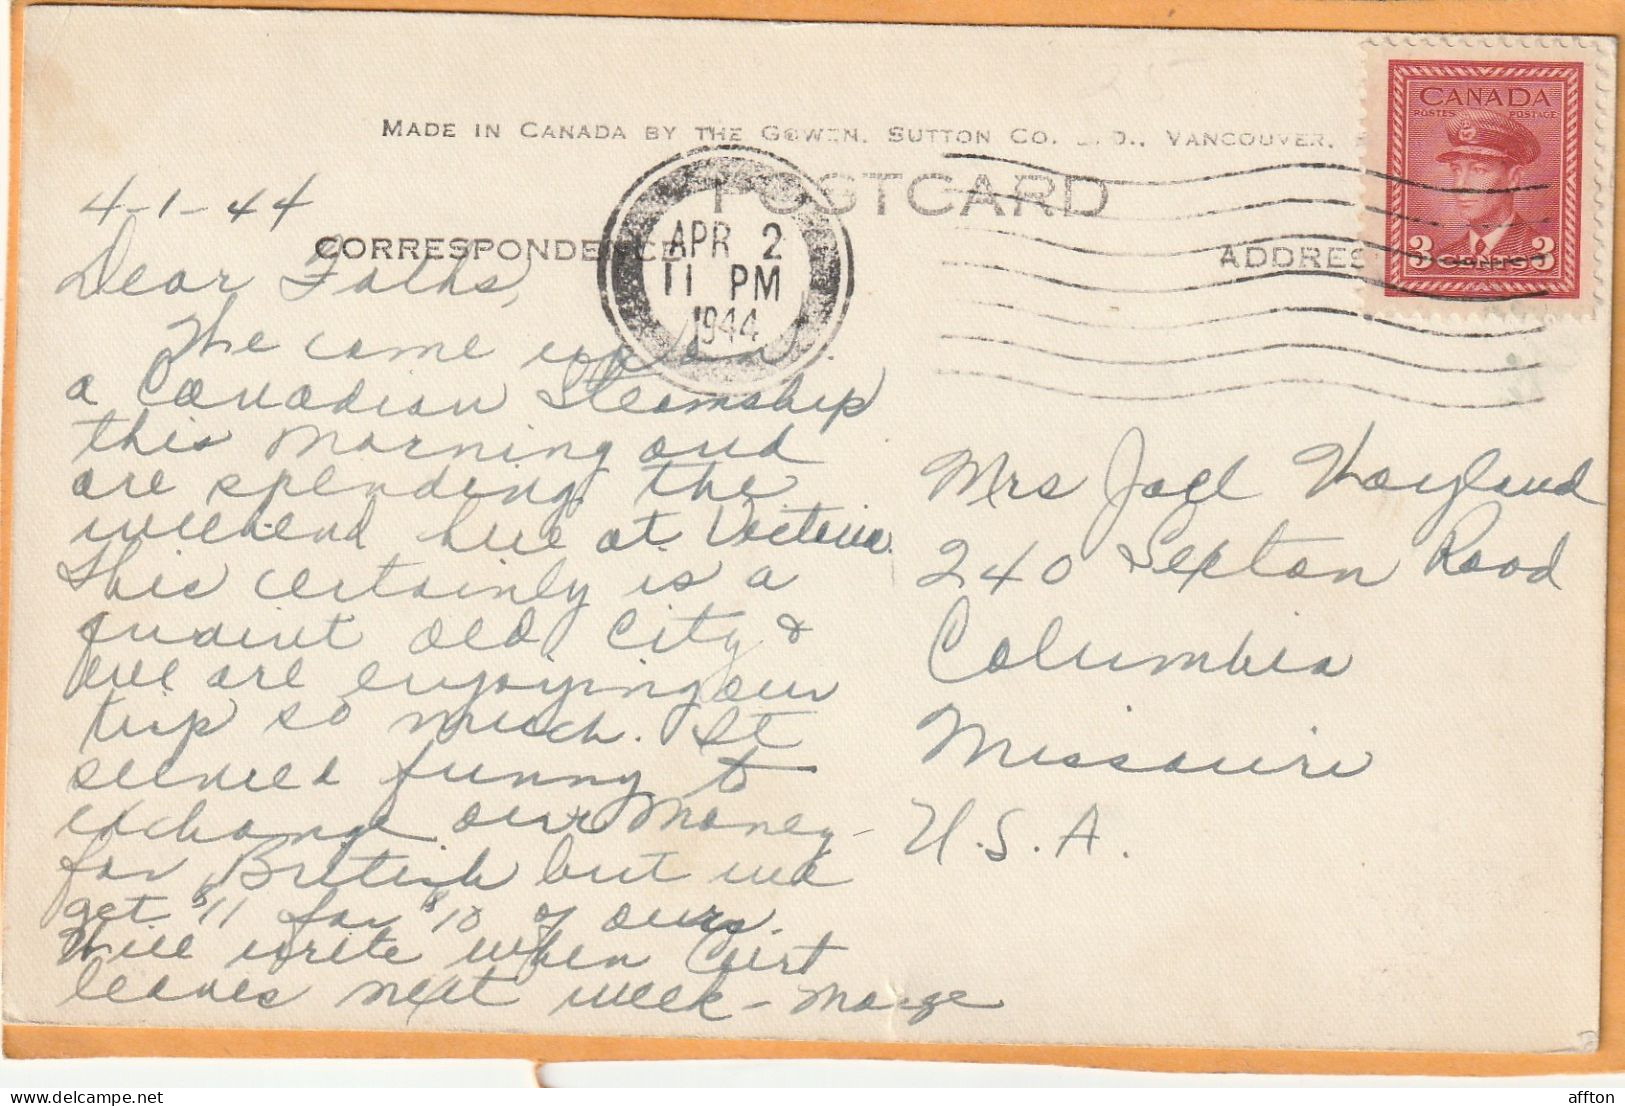 MADE IN CANADA BY THE GOWEN, SUTTON CO. LTD., VANCOUVER,
POSTCARD
CORRESPONDENCE
ADDRES
APR 2
11 PM
1944
CANADA
POSTES POSTAGE
3 CENTS 3
4-1-44
Dear Folks,
The came up on
a Canadian Steamship
this morning and
are spending the
weekend here at Victoria.
This certainly is a
quaint old city &
we are enjoying our
trip so much. It
seemed funny to
exchange our money
for British but we
get $11 for $10 of ours.
Will write when Curt
leaves next week - Marge
Mrs Joel Wayland
240 Sexton Road
Columbia
Missouri
U.S.A.
affton